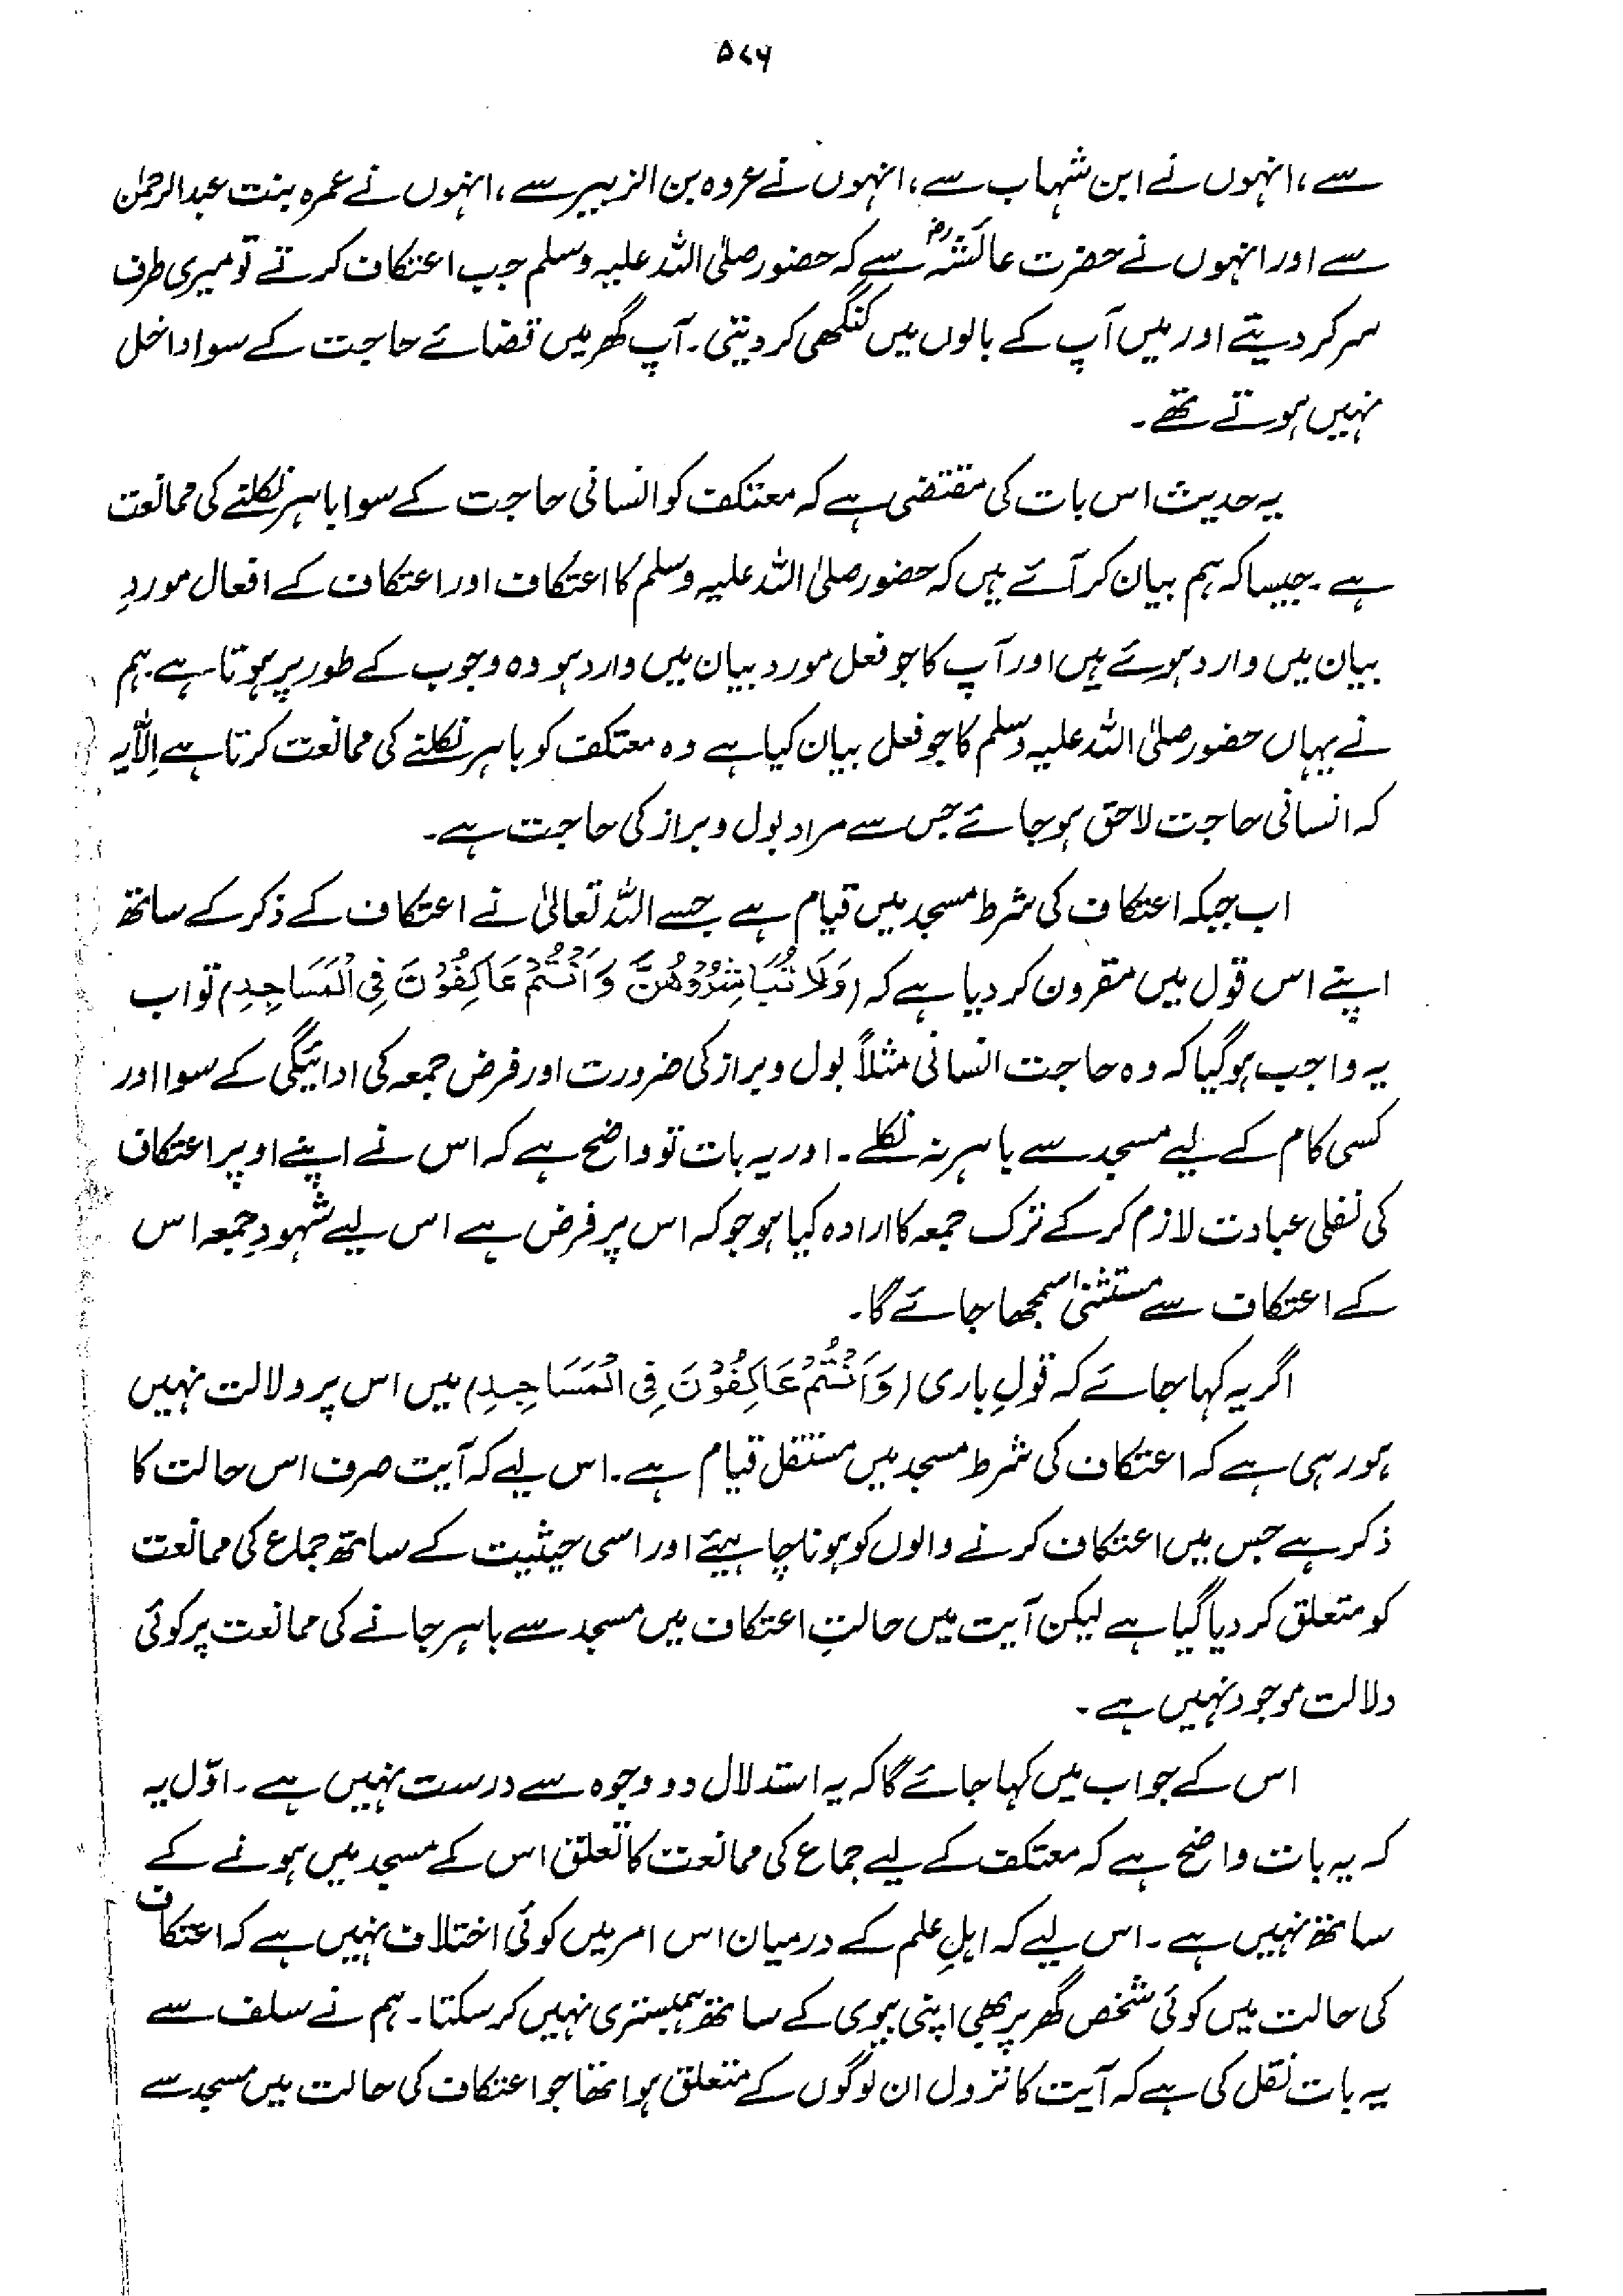 ۵۷۶
سے، انہوں نے ابن شہاب سے، انہوں نے عروہ بن الزبیر سے، انہوں نے عمرہ بنت عبدالرحمٰن
سے اور انہوں نے حضرت عائشہؓ سے کہ حضور صلی اللہ علیہ وسلم جب اعتکاف کرتے تو میری طرف
سر کر دیتے اور میں آپ کے بالوں میں کنگھی کر دیتی۔ آپ گھر میں قضائے حاجت کے سوا داخل
نہیں ہوتے تھے۔
یہ حدیث اس بات کی مقتضی ہے کہ معتکف کو انسانی حاجت کے سوا باہر نکلنے کی ممانعت
ہے۔ جیسا کہ ہم بیان کر آئے ہیں کہ حضور صلی اللہ علیہ وسلم کا اعتکاف اور اعتکاف کے افعال موردِ
بیان میں وارد ہوئے ہیں اور آپ کا جو فعل مورد بیان میں وارد ہو وہ وجوب کے طور پر ہوتا ہے۔ ہم
نے یہاں حضور صلی اللہ علیہ وسلم کا جو فعل بیان کیا ہے وہ معتکف کو باہر نکلنے کی ممانعت کرتا ہے اِلّا یہ
کہ انسانی حاجت لاحق ہو جائے جس سے مراد بول و براز کی حاجت ہے۔
اب جبکہ اعتکاف کی شرط مسجد میں قیام ہے جسے اللہ تعالیٰ نے اعتکاف کے ذکر کے ساتھ
اپنے اس قول میں مقرون کر دیا ہے کہ (وَلَا تُبَاشِرُوْهُنَّ وَاَنْتُمْ عَاکِفُوْنَ فِی الْمَسَاجِدِ) تو اب
یہ واجب ہو گیا کہ وہ حاجت انسانی مثلاً بول و براز کی ضرورت اور فرض جمعہ کی ادائیگی کے سوا اور
کسی کام کے لیے مسجد سے باہر نہ نکلے۔ اور یہ بات تو واضح ہے کہ اس نے اپنے اوپر اعتکاف
کی نفلی عبادت لازم کر کے ترک جمعہ کا ارادہ کیا ہو جو کہ اس پر فرض ہے اس لیے شہودِ جمعہ اس
کے اعتکاف سے مستثنیٰ سمجھا جائے گا۔
اگر یہ کہا جائے کہ قولِ باری (وَاَنْتُمْ عَاکِفُوْنَ فِی الْمَسَاجِدِ) میں اس پر دلالت نہیں
ہو رہی ہے کہ اعتکاف کی شرط مسجد میں مستقل قیام ہے۔ اس لیے کہ آیت صرف اس حالت کا
ذکر ہے جس میں اعتکاف کرنے والوں کو ہونا چاہیئے اور اسی حیثیت کے ساتھ جماع کی ممانعت
کو متعلق کر دیا گیا ہے لیکن آیت میں حالتِ اعتکاف میں مسجد سے باہر جانے کی ممانعت پر کوئی
دلالت موجود نہیں ہے۔
اس کے جواب میں کہا جائے گا کہ یہ استدلال دو وجوہ سے درست نہیں ہے۔ اوّل یہ
کہ یہ بات واضح ہے کہ معتکف کے لیے جماع کی ممانعت کا تعلق اس کے مسجد میں ہونے کے
ساتھ نہیں ہے۔ اس لیے کہ اہلِ علم کے درمیان اس امر میں کوئی اختلاف نہیں ہے کہ اعتکاف
کی حالت میں کوئی شخص گھر پر بھی اپنی بیوی کے ساتھ ہمبستری نہیں کر سکتا۔ ہم نے سلف سے
یہ بات نقل کی ہے کہ آیت کا نزول ان لوگوں کے متعلق ہوا تھا جو اعتکاف کی حالت میں مسجد سے